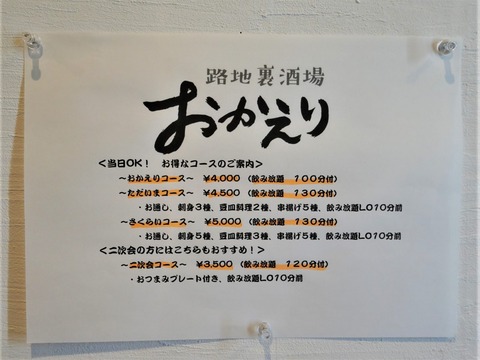 路地裏酒場
おかえり
＜当日OK！ お得なコースのご案内＞
～おかえりコース～ ￥4,000 （飲み放題 100分付）
～ただいまコース～ ￥4,500 （飲み放題 130分付）
・お通し、刺身3種、豆皿料理2種、串揚げ5種、飲み放題LO10分前
～さくらいコース～ ￥5,000 （飲み放題 130分付）
・お通し、刺身5種、豆皿料理3種、串揚げ5種、飲み放題LO10分前
＜二次会の方にはこちらもおすすめ！＞
～二次会コース～ ￥3,500 （飲み放題 120分付）
・おつまみプレート付き、飲み放題LO10分前